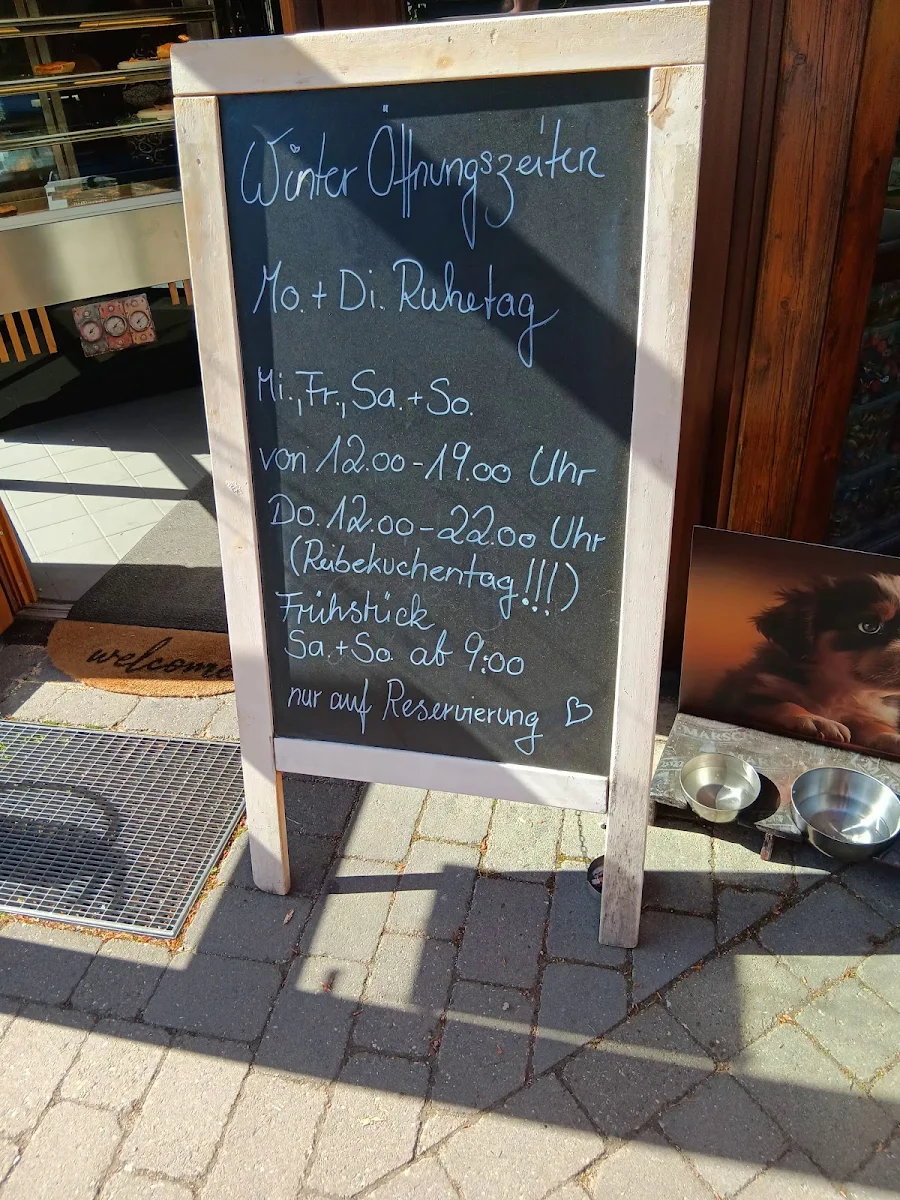 Winter Öffnungszeiten
Mo. + Di. Ruhetag
Mi., Fr., Sa. + So.
von 12.00 - 19.00 Uhr
Do. 12.00 - 22.00 Uhr
(Reibekuchentag!!!)
Frühstück
Sa. + So. ab 9:00
nur auf Reservierung ♡
welcome